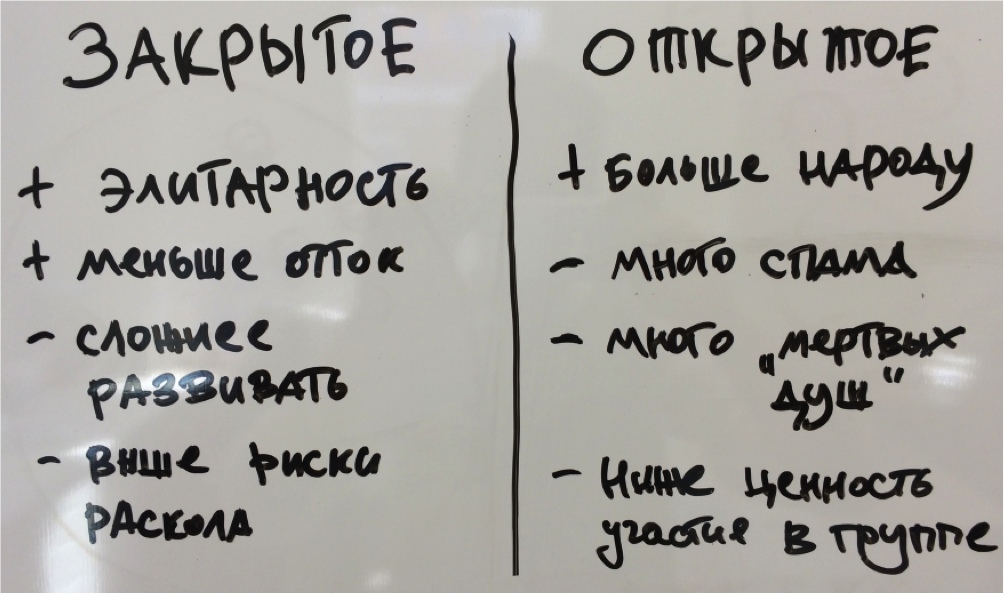 ЗАКРЫТОЕ
+ ЭЛИТАРНОСТЬ
+ меньше отток
- сложнее
развивать
- выше риски
раскола
ОТКРЫТОЕ
+ больше народу
- много спама
- много „мертвых
душ“
- Ниже ценность
участия в группе